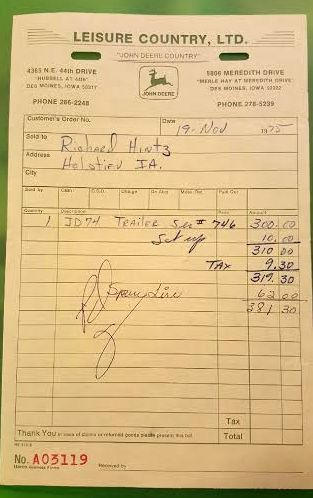 LEISURE COUNTRY, LTD.
"JOHN DEERE COUNTRY"
4365 N.E. 44th DRIVE
"HUBBELL AT 44th"
DES MOINES, IOWA 50317
PHONE 266-2248
JOHN DEERE
5806 MEREDITH DRIVE
"MERLE HAY AT MEREDITH DRIVE"
DES MOINES, IOWA 50322
PHONE 278-5239
Customer's Order No.
Date 19-Nov 1975
Sold to Richard Hintz
Address Holstien IA.
City
Sold by Cash C.O.D. Charge On Acct. Mdse. Ret. Paid Out
Quantity Description Price Amount
1 JD74 TRAILER Ser # 746 300.00
Set up 10.00
310 00
TAX 9.30
319.30
62 00
381 30
Tax
Thank You Total
No. A03119
Received by